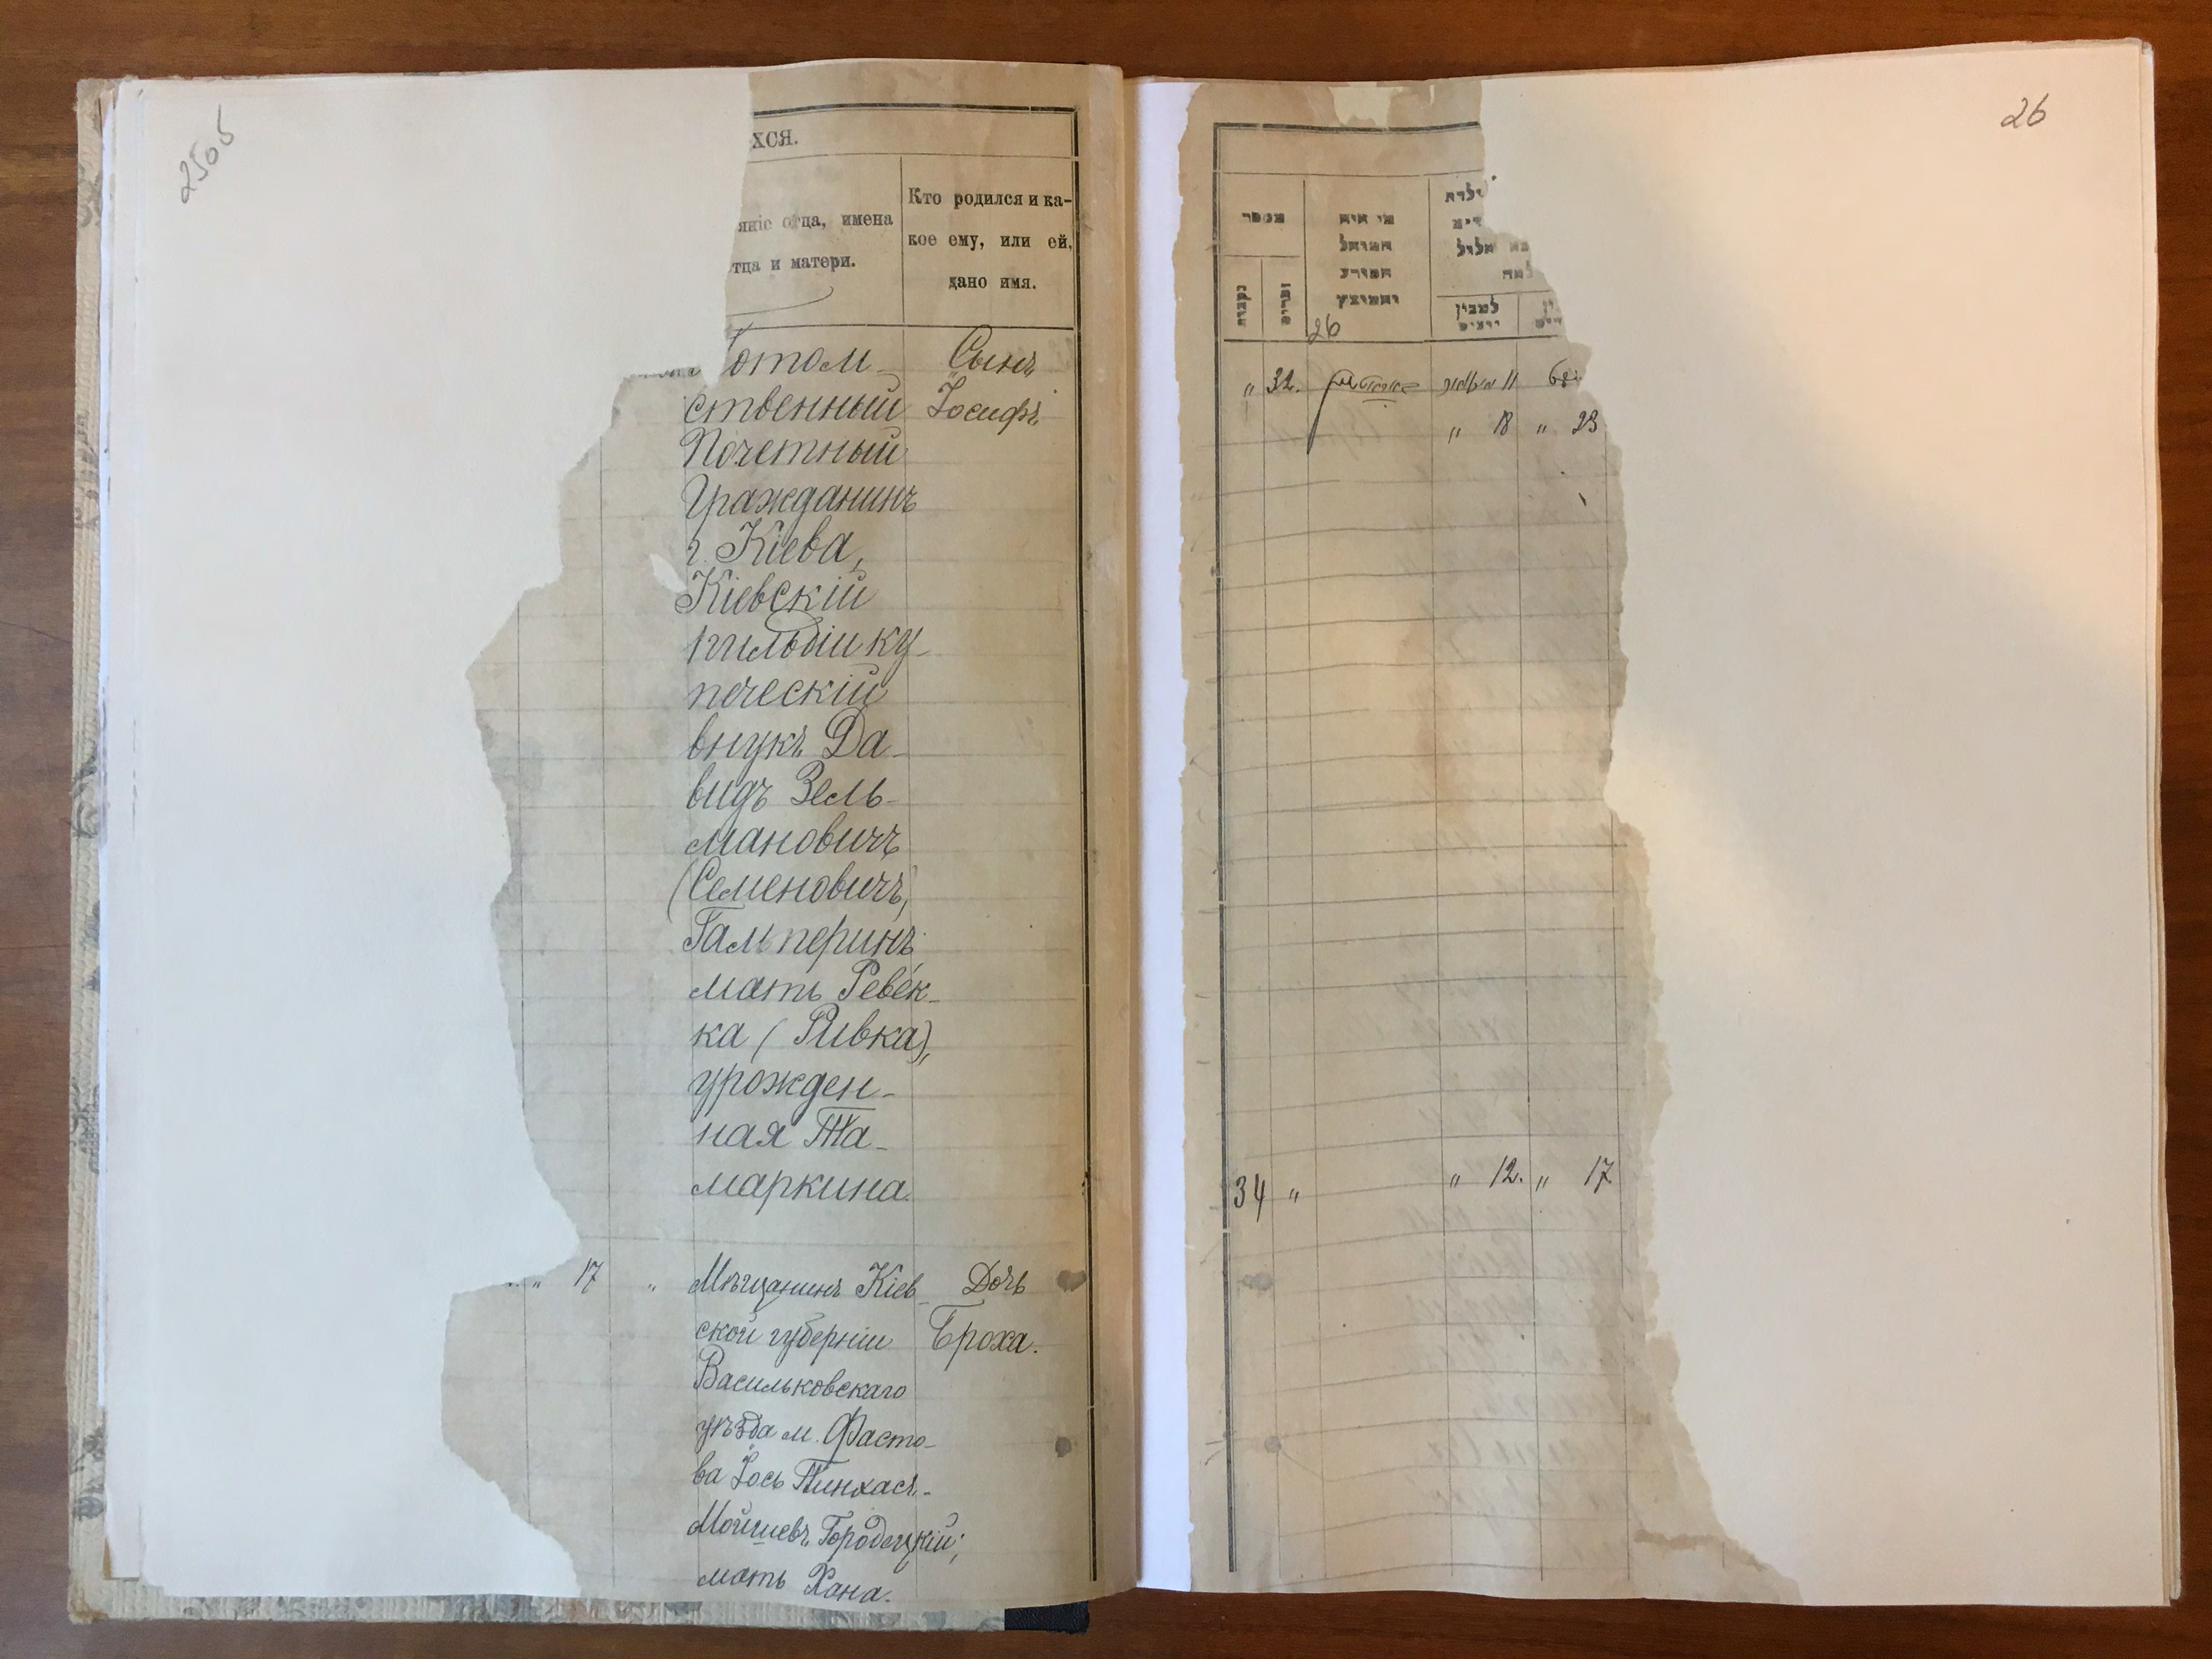 250б
ХСЯ.
яніе отца, имена
отца и матери.
Кто родился и ка-
кое ему, или ей,
дано имя.
Потом-
ственный
Почетный
Гражданинъ
г. Кіева,
Кіевскій
1 гильдіи ку-
печескій
внукъ Да-
видъ Зель-
мановичъ
(Семеновичъ)
Гальперинъ,
мать Ревек-
ка (Ривка),
урожден-
ная Та-
маркина.
Сынъ
Іосифъ
" 17 "
Мѣщанинъ Кіев-
ской губерніи
Васильковскаго
уѣзда м. Фасто-
ва Іось Пинхасъ-
Мойшевъ Городецкій;
мать Хана.
Доч
Броха.
26
מספר
נקבות
זכרים
מי היה
המוהל
הפורע
והמוצץ
למנין
26
" 32. 11
" 18 " 23
34 " " 12. " 17